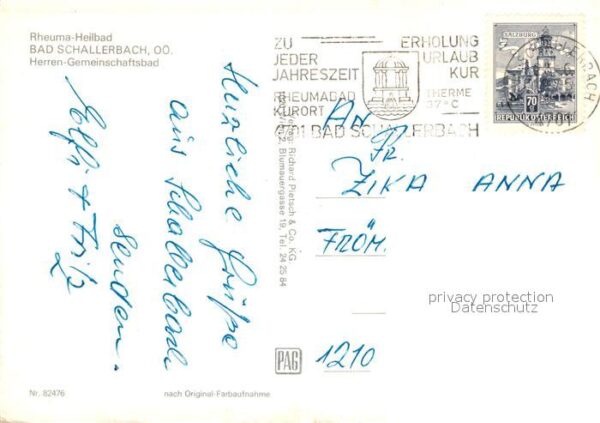 Rheuma-Heilbad
BAD SCHALLERBACH, OÖ.
Herren-Gemeinschaftsbad
Herzliche Grüße
aus Schallerbach
senden
Elfi + Fritz
Nr. 82476
nach Original-Farbaufnahme
Verlag: Richard Pietsch & Co. KG
Blumauergasse 19, Tel. 24 25 84
PAG
ZU
JEDER
JAHRESZEIT
RHEUMABAD
KURORT
ERHOLUNG
URLAUB
KUR
THERME
37° C
4701 BAD SCHALLERBACH
SALZBURG
70
REPUBLIK ÖSTERREICH
AN
Fr.
ZIKA ANNA
FRÖM.
1210
privacy protection
Datenschutz